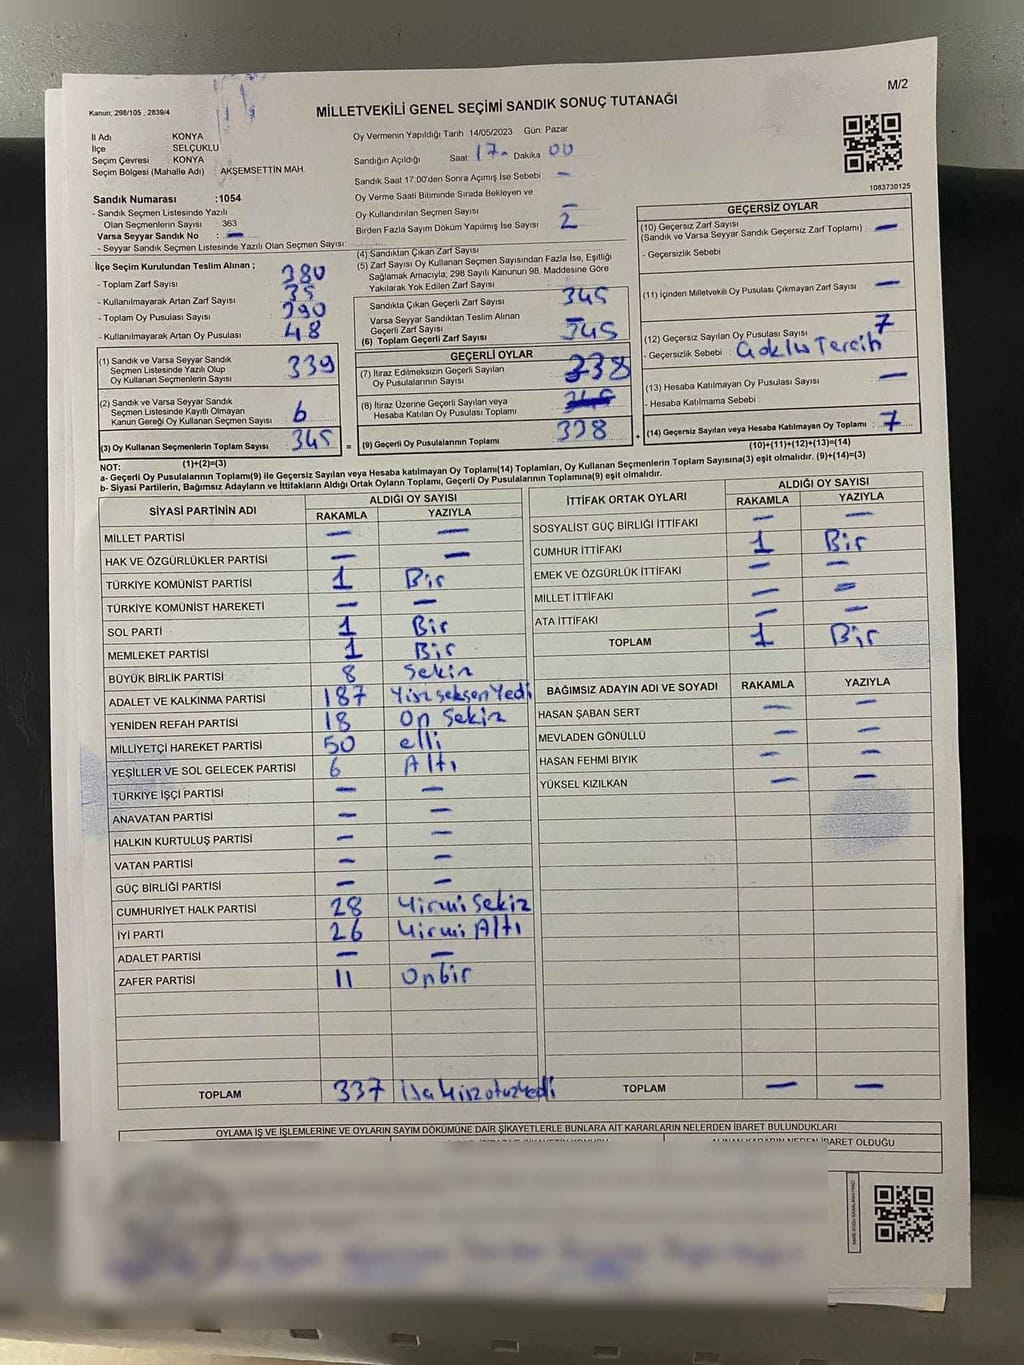 M/2
Kanun; 298/105 , 2839/4
MİLLETVEKİLİ GENEL SEÇİMİ SANDIK SONUÇ TUTANAĞI
İl Adı KONYA
İlçe SELÇUKLU
Seçim Çevresi KONYA
Seçim Bölgesi (Mahalle Adı) : AKŞEMSETTİN MAH.
Sandık Numarası :1054
- Sandık Seçmen Listesinde Yazılı
Olan Seçmenlerin Sayısı 363
Varsa Seyyar Sandık No : —
- Seyyar Sandık Seçmen Listesinde Yazılı Olan Seçmen Sayısı:
Oy Vermenin Yapıldığı Tarih :14/05/2023 Gün: Pazar
Sandığın Açıldığı Saat: 17- Dakika 00
Sandık Saat 17:00'den Sonra Açımış İse Sebebi : —
Oy Verme Saati Bitiminde Sırada Bekleyen ve
Oy Kullandırılan Seçmen Sayısı —
Birden Fazla Sayım Döküm Yapılmış İse Sayısı : 2
1083730125
İlçe Seçim Kurulundan Teslim Alınan ;
- Toplam Zarf Sayısı : 380
- Kullanılmayarak Artan Zarf Sayısı : 35
- Toplam Oy Pusulası Sayısı : 390
- Kullanılmayarak Artan Oy Pusulası : 48
(1) Sandık ve Varsa Seyyar Sandık
Seçmen Listesinde Yazılı Olup
Oy Kullanan Seçmenlerin Sayısı 339
(2) Sandık ve Varsa Seyyar Sandık
Seçmen Listesinde Kayıtlı Olmayan
Kanun Gereği Oy Kullanan Seçmen Sayısı 6
(3) Oy Kullanan Seçmenlerin Toplam Sayısı 345 =
(1)+(2)=(3)
(4) Sandıktan Çıkan Zarf Sayısı
(5) Zarf Sayısı Oy Kullanan Seçmen Sayısından Fazla İse, Eşitliği
Sağlamak Amacıyla, 298 Sayılı Kanunun 98. Maddesine Göre
Yakılarak Yok Edilen Zarf Sayısı :
Sandıkta Çıkan Geçerli Zarf Sayısı 345
Varsa Seyyar Sandıktan Teslim Alınan
Geçerli Zarf Sayısı —
(6) Toplam Geçerli Zarf Sayısı 345
GEÇERLİ OYLAR
(7) İtiraz Edilmeksizin Geçerli Sayılan
Oy Pusulalarının Sayısı 338
(8) İtiraz Üzerine Geçerli Sayılan veya
Hesaba Katılan Oy Pusulası Toplamı
(9) Geçerli Oy Pusulalarının Toplamı 338 +
GEÇERSİZ OYLAR
(10) Geçersiz Zarf Sayısı
(Sandık ve Varsa Seyyar Sandık Geçersiz Zarf Toplamı) : —
- Geçersizlik Sebebi :
(11) İçinden Milletvekili Oy Pusulası Çıkmayan Zarf Sayısı : —
(12) Geçersiz Sayılan Oy Pusulası Sayısı : 7
- Geçersizlik Sebebi :
(13) Hesaba Katılmayan Oy Pusulası Sayısı : —
- Hesaba Katılmama Sebebi :
(14) Geçersiz Sayılan veya Hesaba Katılmayan Oy Toplamı : 7
(10)+(11)+(12)+(13)=(14)
NOT:
a- Geçerli Oy Pusulalarının Toplamı(9) ile Geçersiz Sayılan veya Hesaba katılmayan Oy Toplamı(14) Toplamları, Oy Kullanan Seçmenlerin Toplam Sayısına(3) eşit olmalıdır. (9)+(14)=(3)
b- Siyasi Partilerin, Bağımsız Adayların ve İttifakların Aldığı Ortak Oyların Toplamı, Geçerli Oy Pusulalarının Toplamına(9) eşit olmalıdır.
SİYASİ PARTİNİN ADI ALDIĞI OY SAYISI
RAKAMLA YAZIYLA
MİLLET PARTİSİ — —
HAK VE ÖZGÜRLÜKLER PARTİSİ — —
TÜRKİYE KOMÜNİST PARTİSİ 1 Bir
TÜRKİYE KOMÜNİST HAREKETİ — —
SOL PARTİ 1 Bir
MEMLEKET PARTİSİ 1 Bir
BÜYÜK BİRLİK PARTİSİ 8 Sekiz
ADALET VE KALKINMA PARTİSİ 187 Yüzseksen Yedi
YENİDEN REFAH PARTİSİ 18 On Sekiz
MİLLİYETÇİ HAREKET PARTİSİ 50 elli
YEŞİLLER VE SOL GELECEK PARTİSİ 6 Altı
TÜRKİYE İŞÇİ PARTİSİ — —
ANAVATAN PARTİSİ — —
HALKIN KURTULUŞ PARTİSİ — —
VATAN PARTİSİ — —
GÜÇ BİRLİĞİ PARTİSİ — —
CUMHURİYET HALK PARTİSİ 28 Yirmi Sekiz
İYİ PARTİ 26 Yirmi Altı
ADALET PARTİSİ — —
ZAFER PARTİSİ 11 Onbir
TOPLAM 337
İTTİFAK ORTAK OYLARI ALDIĞI OY SAYISI
RAKAMLA YAZIYLA
SOSYALİST GÜÇ BİRLİĞİ İTTİFAKI — —
CUMHUR İTTİFAKI 1 Bir
EMEK VE ÖZGÜRLÜK İTTİFAKI — —
MİLLET İTTİFAKI — —
ATA İTTİFAKI — —
TOPLAM 1 Bir
BAĞIMSIZ ADAYIN ADI VE SOYADI RAKAMLA YAZIYLA
HASAN ŞABAN SERT — —
MEVLADEN GÖNÜLLÜ — —
HASAN FEHMİ BIYIK — —
YÜKSEL KIZILKAN — —
TOPLAM — —
OYLAMA İŞ VE İŞLEMLERİNE VE OYLARIN SAYIM DÖKÜMÜNE DAİR ŞİKAYETLERLE BUNLARA AİT KARARLARIN NELERDEN İBARET BULUNDUKLARI
ALINAN KARARIN NEDEN İBARET OLDUĞU